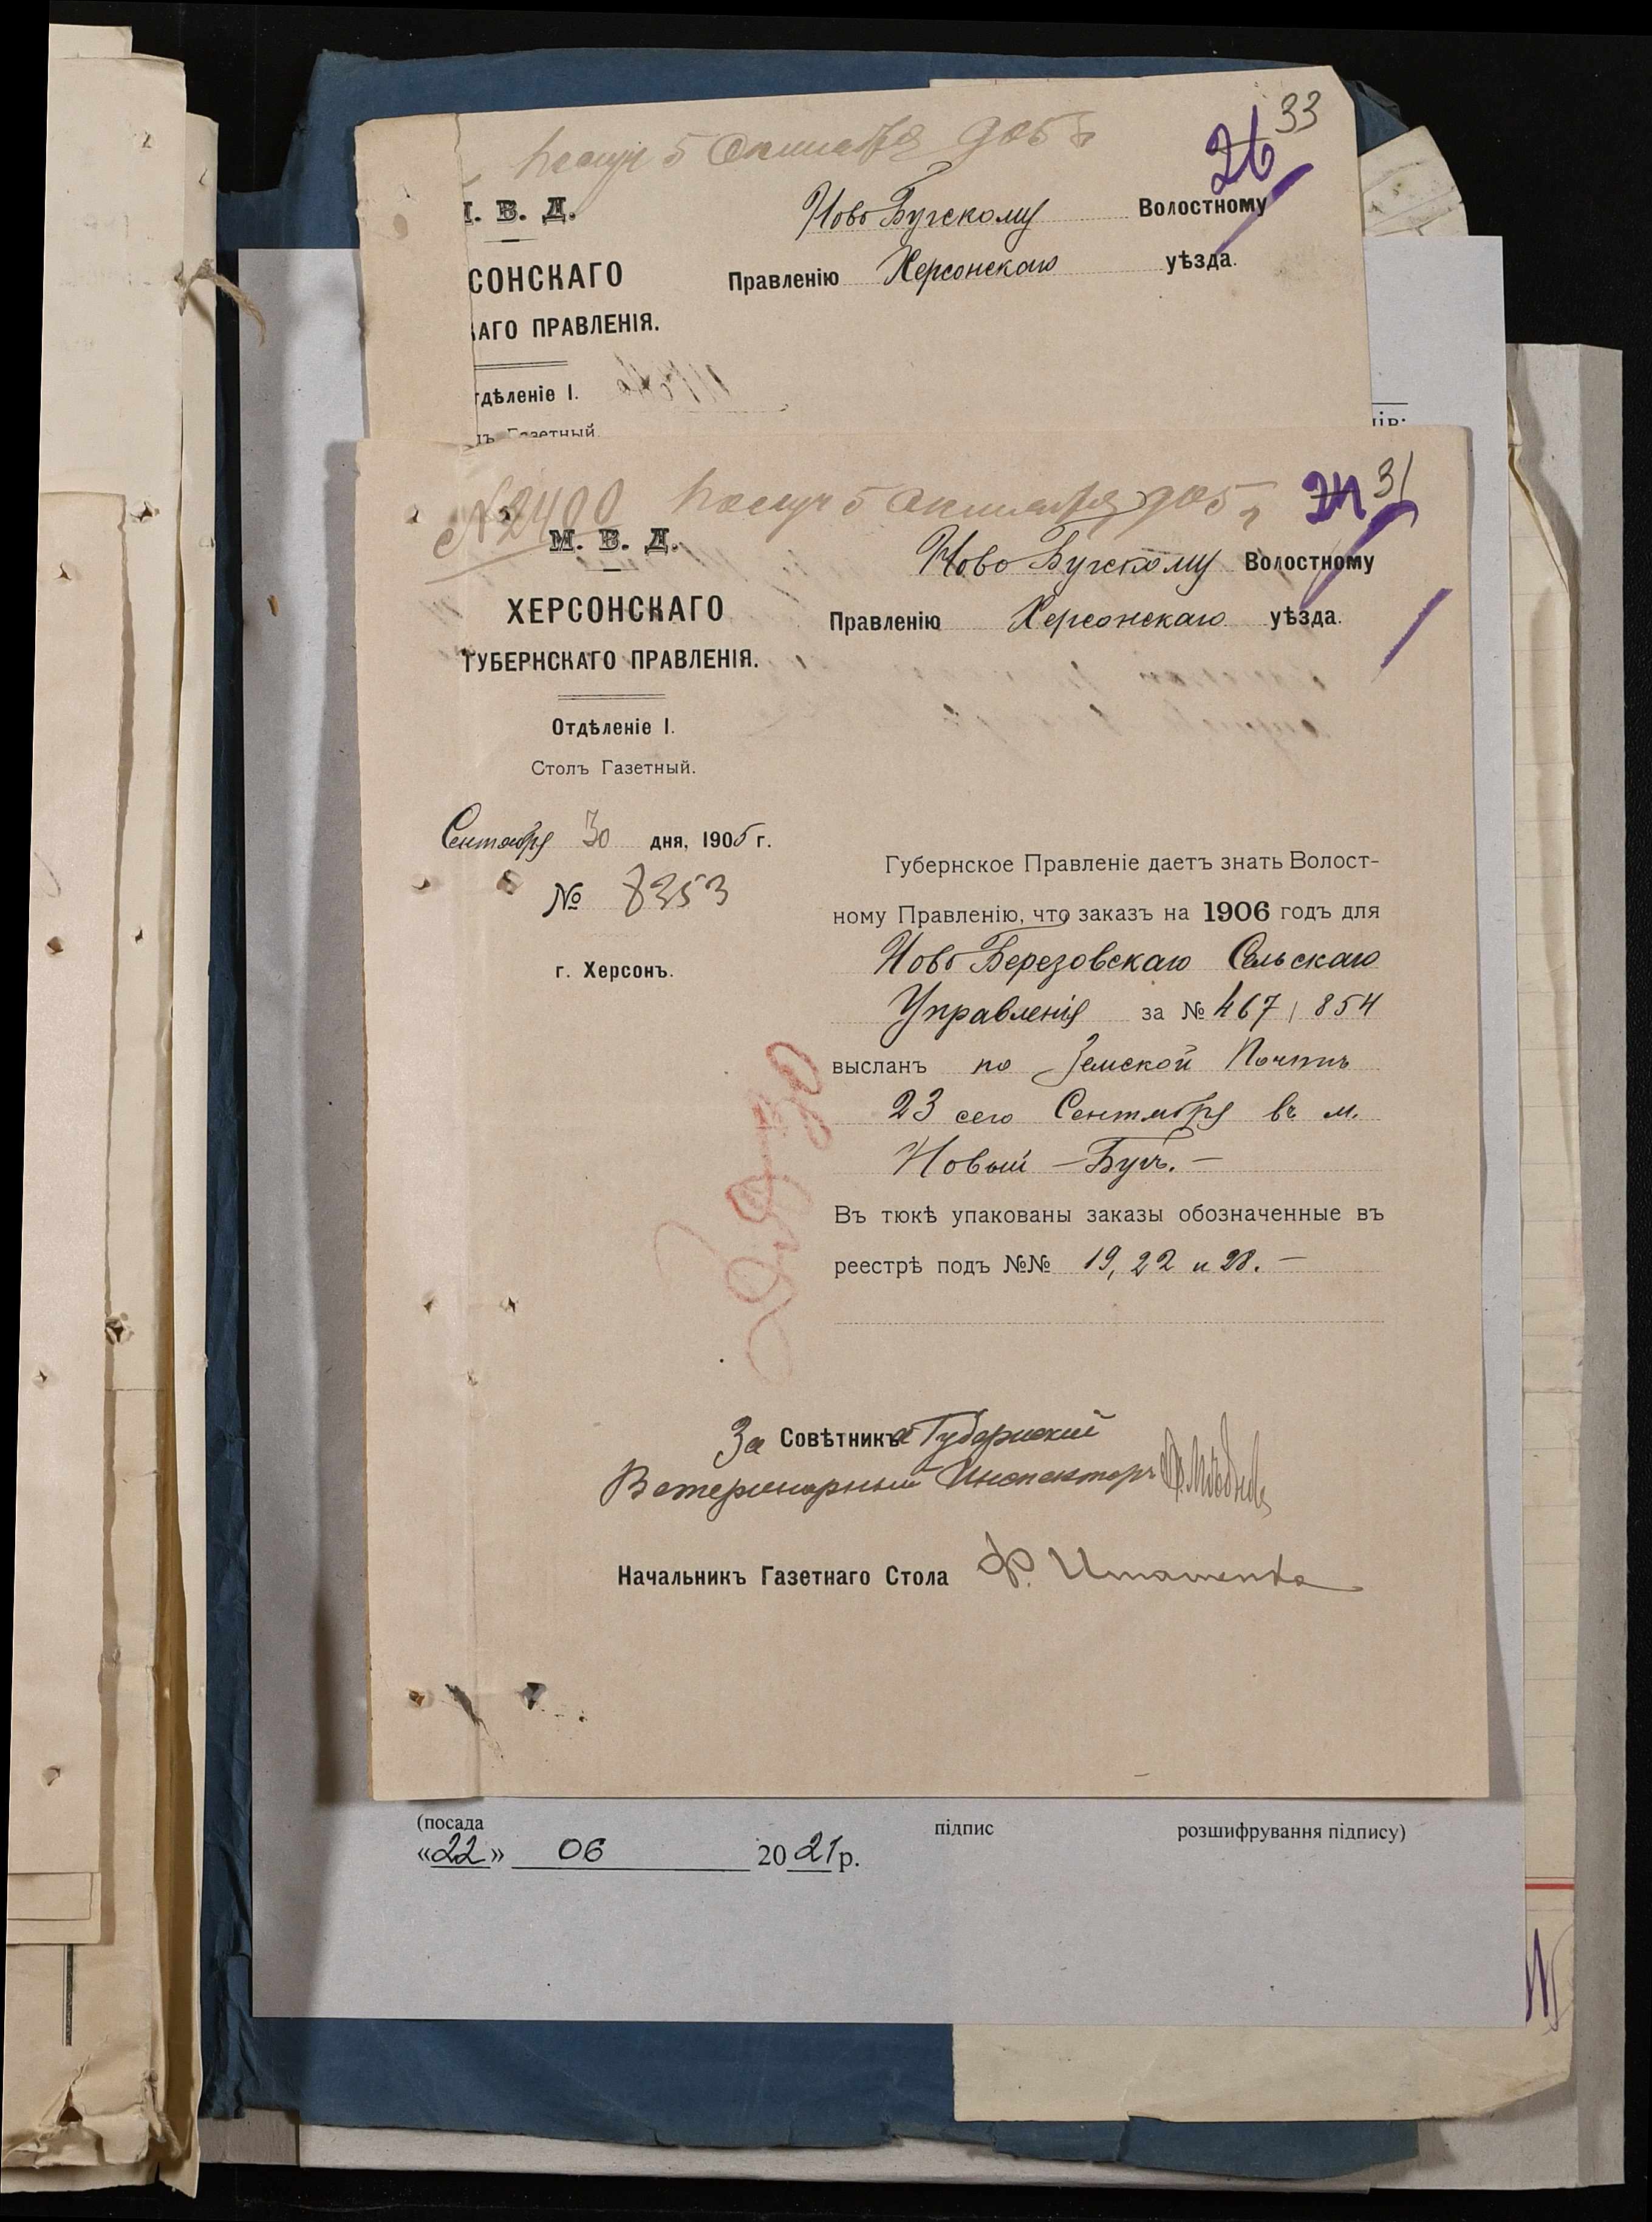 33
26
5 Октября 905 г
В. Д.
Ново Бугскому Волостному
СОНСКАГО
Правленію Херсонскаго уѣзда.
АГО ПРАВЛЕНІЯ.
тдѣленіе I.
Газетный.
31
24
№ 2400 Получ 5 Октября 905 г
М. В. Д.
Ново Бугскому Волостному
ХЕРСОНСКАГО
Правленію Херсонскаго уѣзда.
ГУБЕРНСКАГО ПРАВЛЕНІЯ.
Отдѣленіе I.
Столъ Газетный.
Сентября 30 дня, 1905 г.
№ 8353
г. Херсонъ.
Губернское Правленіе даетъ знать Волост-
ному Правленію, что заказъ на 1906 годъ для
Ново Березовскаго Сельскаго
Управленія за № 467 / 854
высланъ по Земской Почтѣ
23 сего Сентября въ м.
Новый - Бугъ. -
Въ тюкѣ упакованы заказы обозначенные въ
реестрѣ подъ №№ 19, 22 и 28. -
За Совѣтника Губернскій
Ветеринарный Инспекторъ
Начальникъ Газетнаго Стола Ф.
(посада підпис розшифрування підпису)
«22» 06 2021 р.